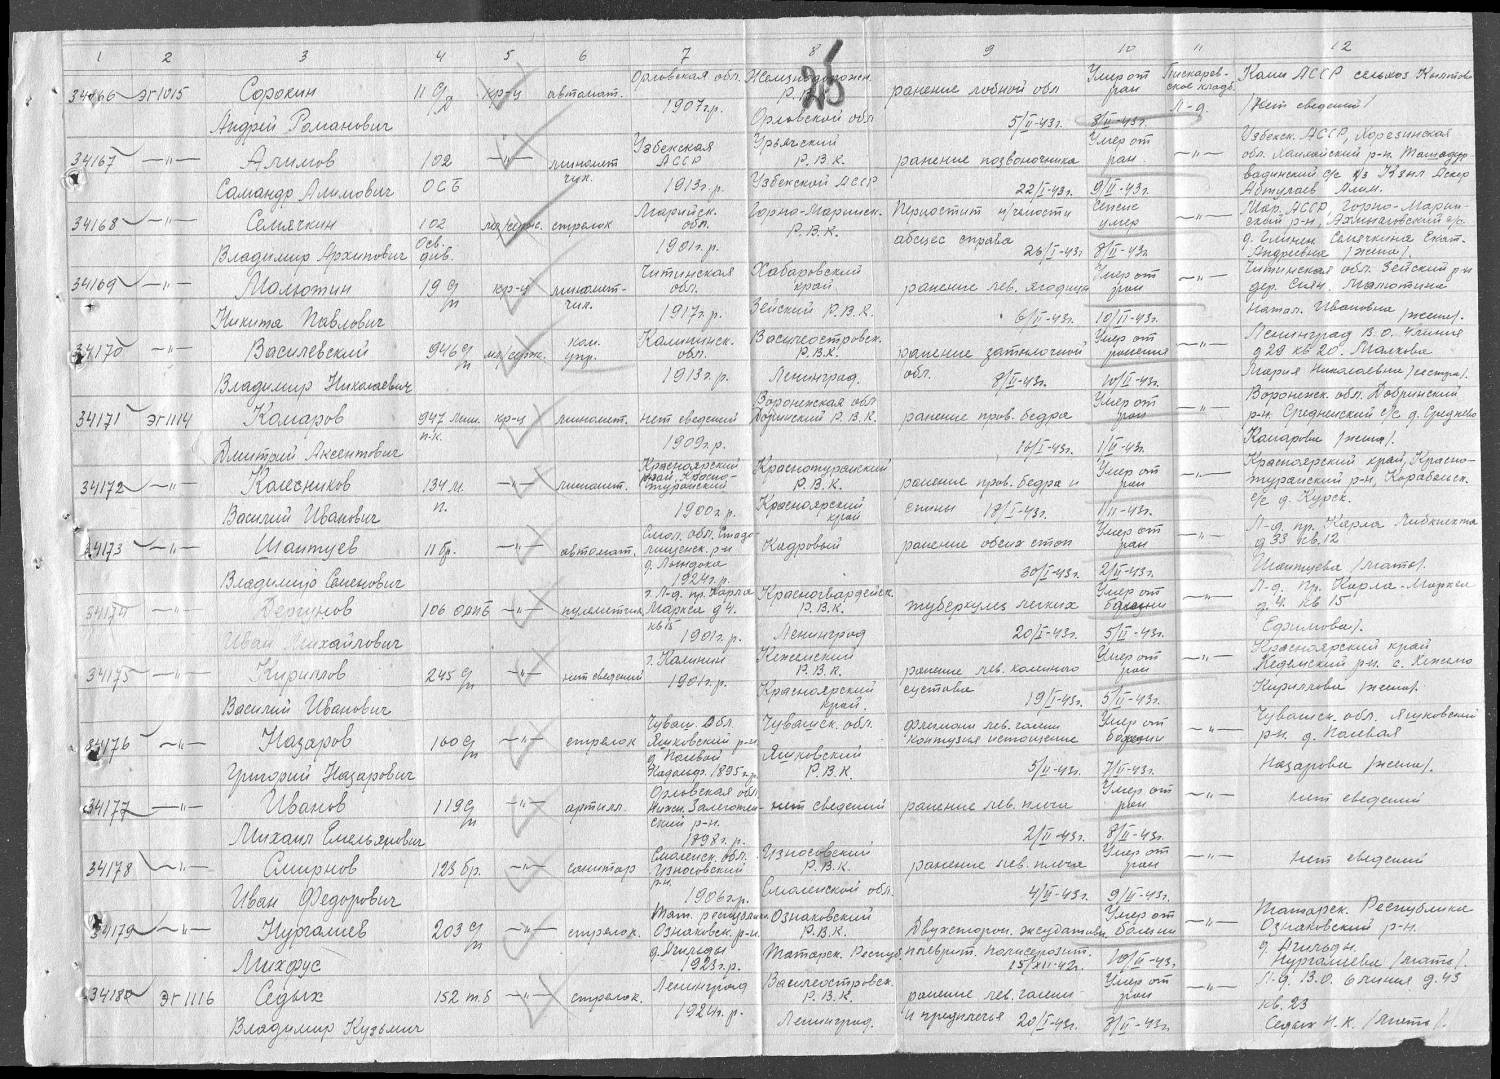 1 2 3 4 5 6 7 8 9 10 11 12
25
34166 ЭГ 1015 Сорокин 11 сд кр-ц автомат. Орловская обл. Железнодорожн. Р.В.К. ранение лобной обл Умер от ран Пискарев-ское кладб. Л-д. Коми АССР сельхоз
Андрей Романович 1907г.р. Орловской обл 5/II-43г. 8/II-43г. /Нет сведений/
34167 —"— Алимов 102 —"— миномет чик. Узбекская АССР Р.В.К. ранение позвоночника Умер от ран. —"— Узбекск. АССР, Хорезинская обл. р-н.
Самандр Алимович ОСБ 1913г.р. Узбекской АССР 22/I-43г. 9/II-43г. с/с к/з Кзыл Аскер Абтулаев Алим.
34168 —"— Семячкин 102 мл/серж. стрелок Марийск. обл. Горно-Марийск. Р.В.К. Периостит н/челюсти Сепсис умер —"— Мар. АССР Горно-Марий-ский р-н,
Владимир Архипович Осв. див. 1901г.р. абсцес справа 26/I-43г 8/II-43г. д. Семячкина Екат. Андреевна /жена/.
34169 —"— Малютин 19 сд кр-ц миномет-чик. Читинская обл. Хабаровский край ранение лев. ягодицы Умер от ран —"— Читинская обл. Зейский р-н дер. Малютина
Никита Павлович 1917г.р. Зейский Р.В.К. 6/II-43г. 10/II-43г. Натал. Ивановна /жена/.
34170 —"— Василевский 946 сп мл/серж. ком. упр. Калининск. обл. Василеостровск. Р.В.К. ранение затылочной обл. Умер от ранения —"— Ленинград В.О. 4 линия д 29 кв 20. Малкова
Владимир Николаевич 1913г.р. Ленинград. 8/II-43г. 10/II-43г. Мария Николаевна /сестра/.
34171 ЭГ 1114 Комаров 947 мин. п-к. кр-ц миномет. нет сведений Воронежская обл Добринский Р.В.К. ранение прав. бедра Умер от ран —"— Воронежск. обл. Добринский р-н. Средненский с/с д. Среднево
Дмитрий Аксентович 1909г.р. 16/I-43г. 1/II-43г. Комарова /жена/.
34172 —"— Колесников 134 м. п. —"— миномет. Красноярский край, Красно-туранский Краснотуранский Р.В.К. ранение прав. бедра и Умер от ран —"— Красноярский край, Красно-туранский р-н, с/с д. Курск.
Василий Иванович 1900г.р. Красноярский край спины 18/I-43г. 1/II-43г.
34173 —"— Шантуев 11 бр. —"— автомат. Смол. обл. р-н д. Кадровый ранение обеих стоп Умер от ран —"— Л-д. пр. Карла Либкнехта д 33 кв. 12
Владимир Семенович 1924г.р. 30/I-43г. 2/II-43г. Шантуева /мать/.
34174 —"— Дергунов 106 —"— г. Л-д. пр. Карла Маркса д 4. кв 15 Красногвардейск. Р.В.К. туберкулез легких Умер от болезни —"— Л-д. Пр. Карла-Маркса д. 4. кв 15
Иван Михайлович 1901г.р. Ленинград 20/I-43г. 5/II-43г. Ефимова/.
34175 —"— Кириллов 245 сд —"— нет сведений г. Калинин 1901г.р. Кежемский Р.В.К. ранение лев. коленного Умер от ран —"— Красноярский край р-н. с. Кежмо
Василий Иванович Красноярский край. сустава 19/I-43г. 5/II-43г. Кириллова /жена/.
34176 —"— Назаров 160 сд —"— стрелок Чуваш. Обл. Яшковский р-н д. Полевой Чувашск. обл. флегмона лев. голени контузия истощение Умер от болезни —"— Чувашск. обл. Яшковский р-н. д. Полевая
Григорий Назарович 1895г.р. Яшковский Р.В.К. 5/II-43г. 7/II-43г. Назарова /жена/.
34177 —"— Иванов 119 сд —"— артилл. Орловская обл. ский р-н. нет сведений ранение лев. плеча Умер от ран —"— нет сведений
Михаил Емельянович 1898г.р. 2/II-43г. 8/II-43г.
34178 —"— Смирнов 123 бр. —"— санитар Смоленск. обл. Износовский р-н. Износовский Р.В.К. ранение лев. плеча Умер от ран —"— нет сведений
Иван Федорович 1906г.р. Смоленской обл. 4/II-43г. 9/II-43г.
34179 —"— Нургалиев 203 сд —"— стрелок. Тат. республики Ознаковск. р-н. д. Агильды Ознаковский Р.В.К. Двухсторон. эксудативн. Умер от болезни —"— Татарск. Республика Ознаковский р-н.
Михфус 1923г.р. Татарск. Респуб. плеврит. полисерозит. 15/XII-42г. 10/II-43. д. Агильды. Нургалиева /мать/.
34180 ЭГ 1116 Седых 152 т.б —"— стрелок. Ленинград Василеостровск. Р.В.К. ранение лев. голени Умер от ран —"— Л-д. В.О. 6 линия д. 43 кв. 23
Владимир Кузьмич 1924г.р. Ленинград. и предплечья 20/I-43г. 8/II-43г. Седых Н.К. /мать/.